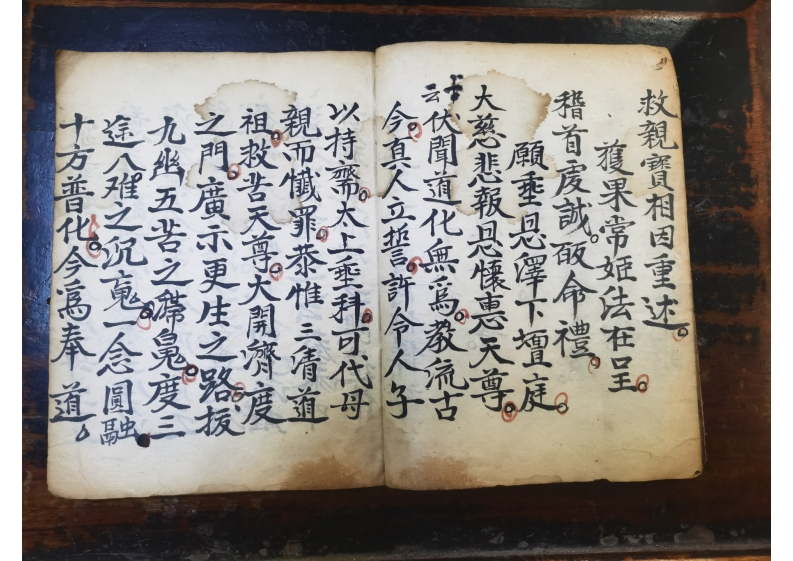 救親寶相因重述。
獲果常姬法在呈。
稽首虔誠皈命禮。
願垂恩澤下壇庭。
大慈悲報恩懷惠天尊。
云伏聞道化無為。教流古
今。真人立誓。許令人子
以持齋。太上垂科。可代母
親而懺罪。恭惟 三清道
祖。救苦天尊。大開濟度
之門。廣示更生之路。拔
九幽五苦之滯鬼。度三
途八难之沉䰟。一念圓融。
十方普化。今為奉 道。